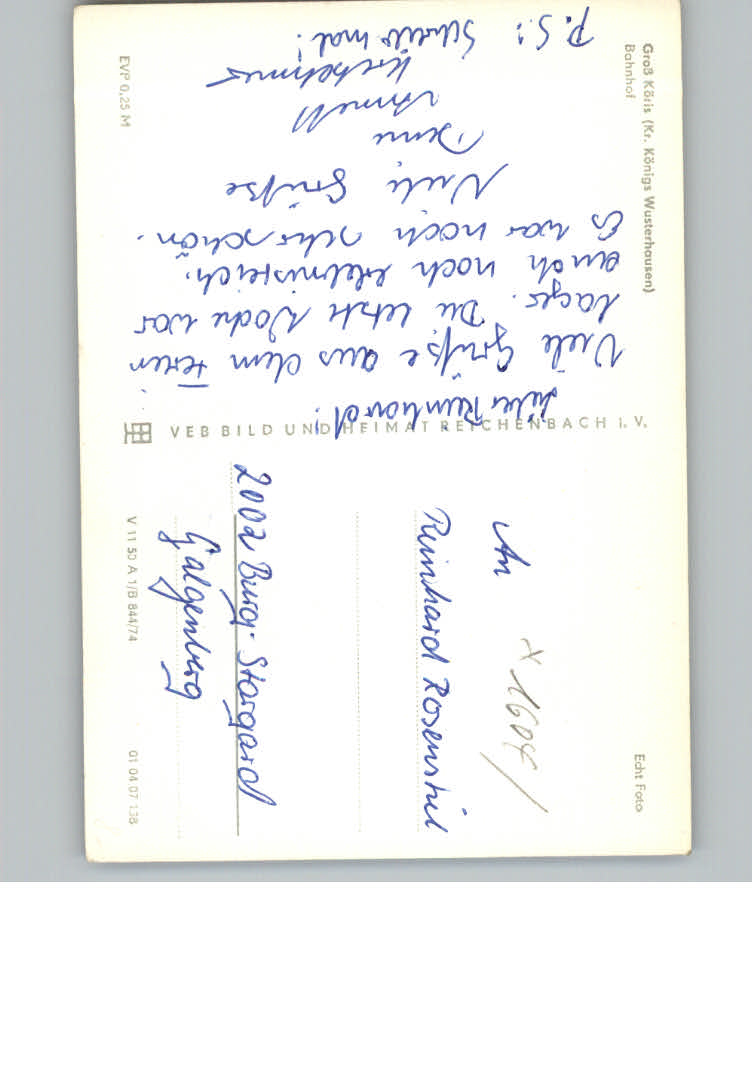 Groß Köris (Kr. Königs Wusterhausen)
Bahnhof
Echt Foto
Lieber Reinhard!
Viele Grüße aus dem Ferien
lager. Die letzte Woche war
auch noch erlebnisreich.
Es war noch sehr schön.
Viele Grüße
Deine
Annett
P.S.: Schreib mal!
VEB BILD UND HEIMAT REICHENBACH I. V.
An
Reinhard Rosenstiel
2002 Burg Stargard
Galgenberg
EVP 0,25 M
V 11 50 A 1/B 844/74
01 04 07 138